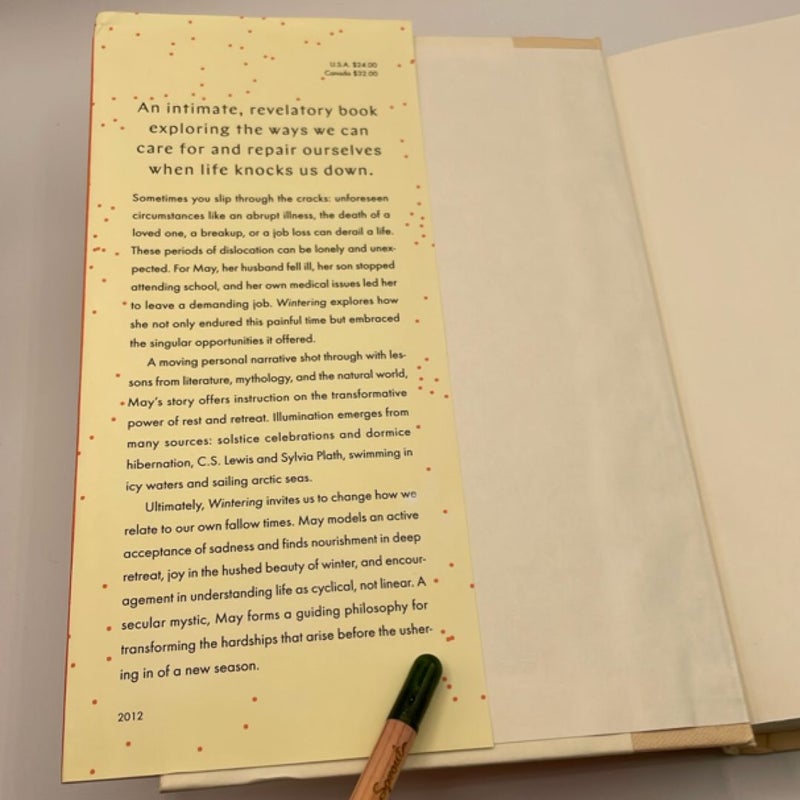 U.S.A. $24.00
Canada $32.00
An intimate, revelatory book
exploring the ways we can
care for and repair ourselves
when life knocks us down.
Sometimes you slip through the cracks: unforeseen
circumstances like an abrupt illness, the death of a
loved one, a breakup, or a job loss can derail a life.
These periods of dislocation can be lonely and unex-
pected. For May, her husband fell ill, her son stopped
attending school, and her own medical issues led her
to leave a demanding job. Wintering explores how
she not only endured this painful time but embraced
the singular opportunities it offered.
A moving personal narrative shot through with les-
sons from literature, mythology, and the natural world,
May's story offers instruction on the transformative
power of rest and retreat. Illumination emerges from
many sources: solstice celebrations and dormice
hibernation, C.S. Lewis and Sylvia Plath, swimming in
icy waters and sailing arctic seas.
Ultimately, Wintering invites us to change how we
relate to our own fallow times. May models an active
acceptance of sadness and finds nourishment in deep
retreat, joy in the hushed beauty of winter, and encour-
agement in understanding life as cyclical, not linear. A
secular mystic, May forms a guiding philosophy for
transforming the hardships that arise before the usher-
ing in of a new season.
2012
Sprout